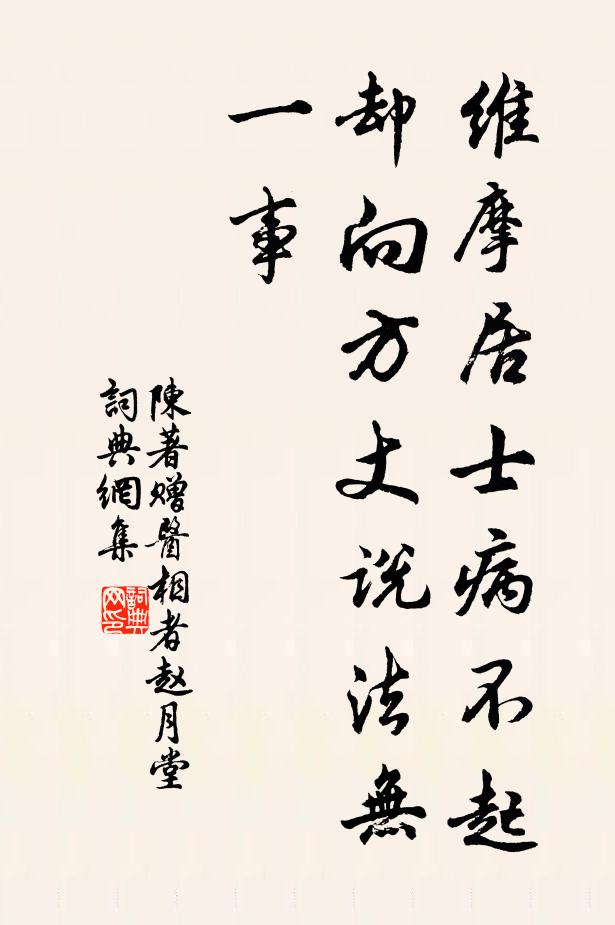 維摩居士病不起
却向方丈説法無
一事
陳著贈醫相者赵月堂
詞典網集
詞典网印